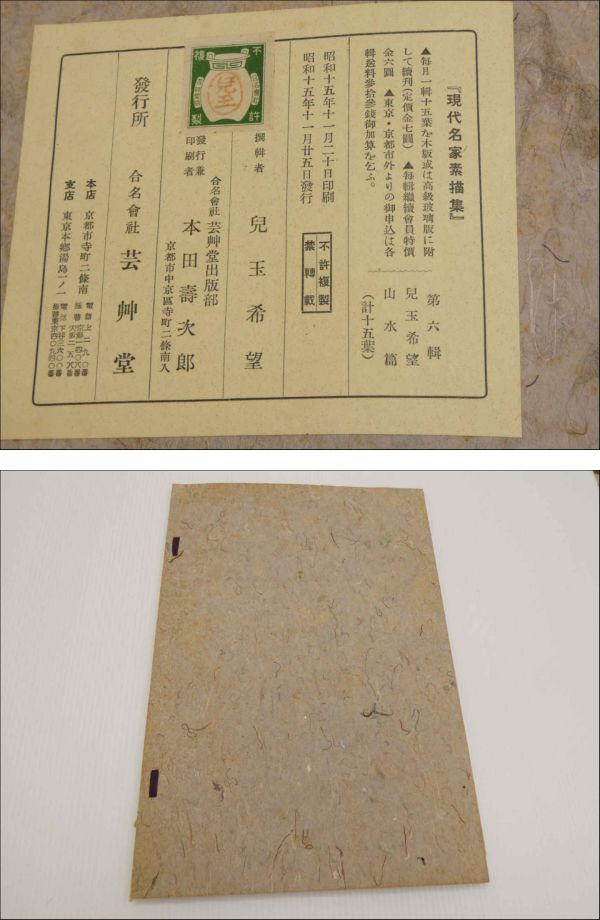 『現代名家素描集』
▲每月一輯十五葉を木版或は高級玻璃版に附
して續刊(定價金七圓) ▲每輯繼續會員特價
金六圓 ▲東京・京都市外よりの御申込は各
輯送料參拾參錢御加算を乞ふ。
第六輯
兒玉希望
山水篇
(計十五葉)
昭和十五年十一月二十日印刷
昭和十五年十一月廿五日發行
不許複製
禁轉載
不許
複製
兒玉
撰輯者 兒玉希望
合名會社 芸艸堂出版部
發行兼印刷者 本田壽次郎
京都市中京區寺町二條南入
發行所 合名會社 芸艸堂
本店 京都市寺町二條南
支店 東京本鄕湯島一ノ一